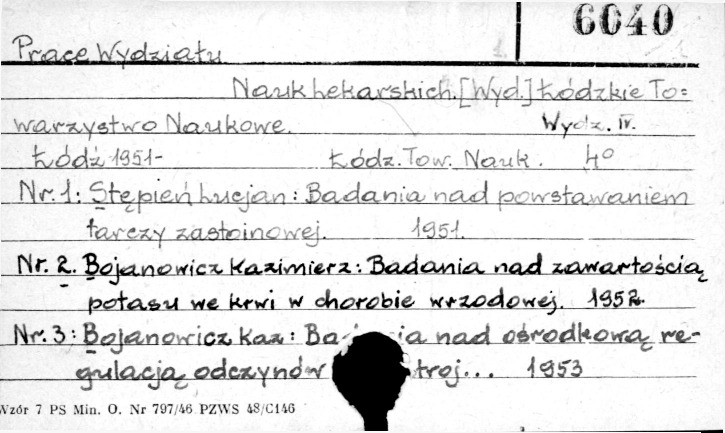 6040
Prace Wydziału
Nauk Lekarskich. [Wyd.] Łódzkie To=
warzystwo Naukowe. Wydz. IV.
Łódź 1951- Łódz. Tow. Nauk. 4°
Nr. 1: Stępień Lucjan: Badania nad powstawaniem
tarczy zastoinowej. 1951.
Nr. 2. Bojanowicz Kazimierz: Badania nad zawartością
potasu we krwi w chorobie wrzodowej. 1952.
Nr. 3: Bojanowicz Kaz: Ba ia nad ośrodkową re-
gulacją odczynów troj... 1953
Wzór 7 PS Min. O. Nr 797/46 PZWS 48/C146